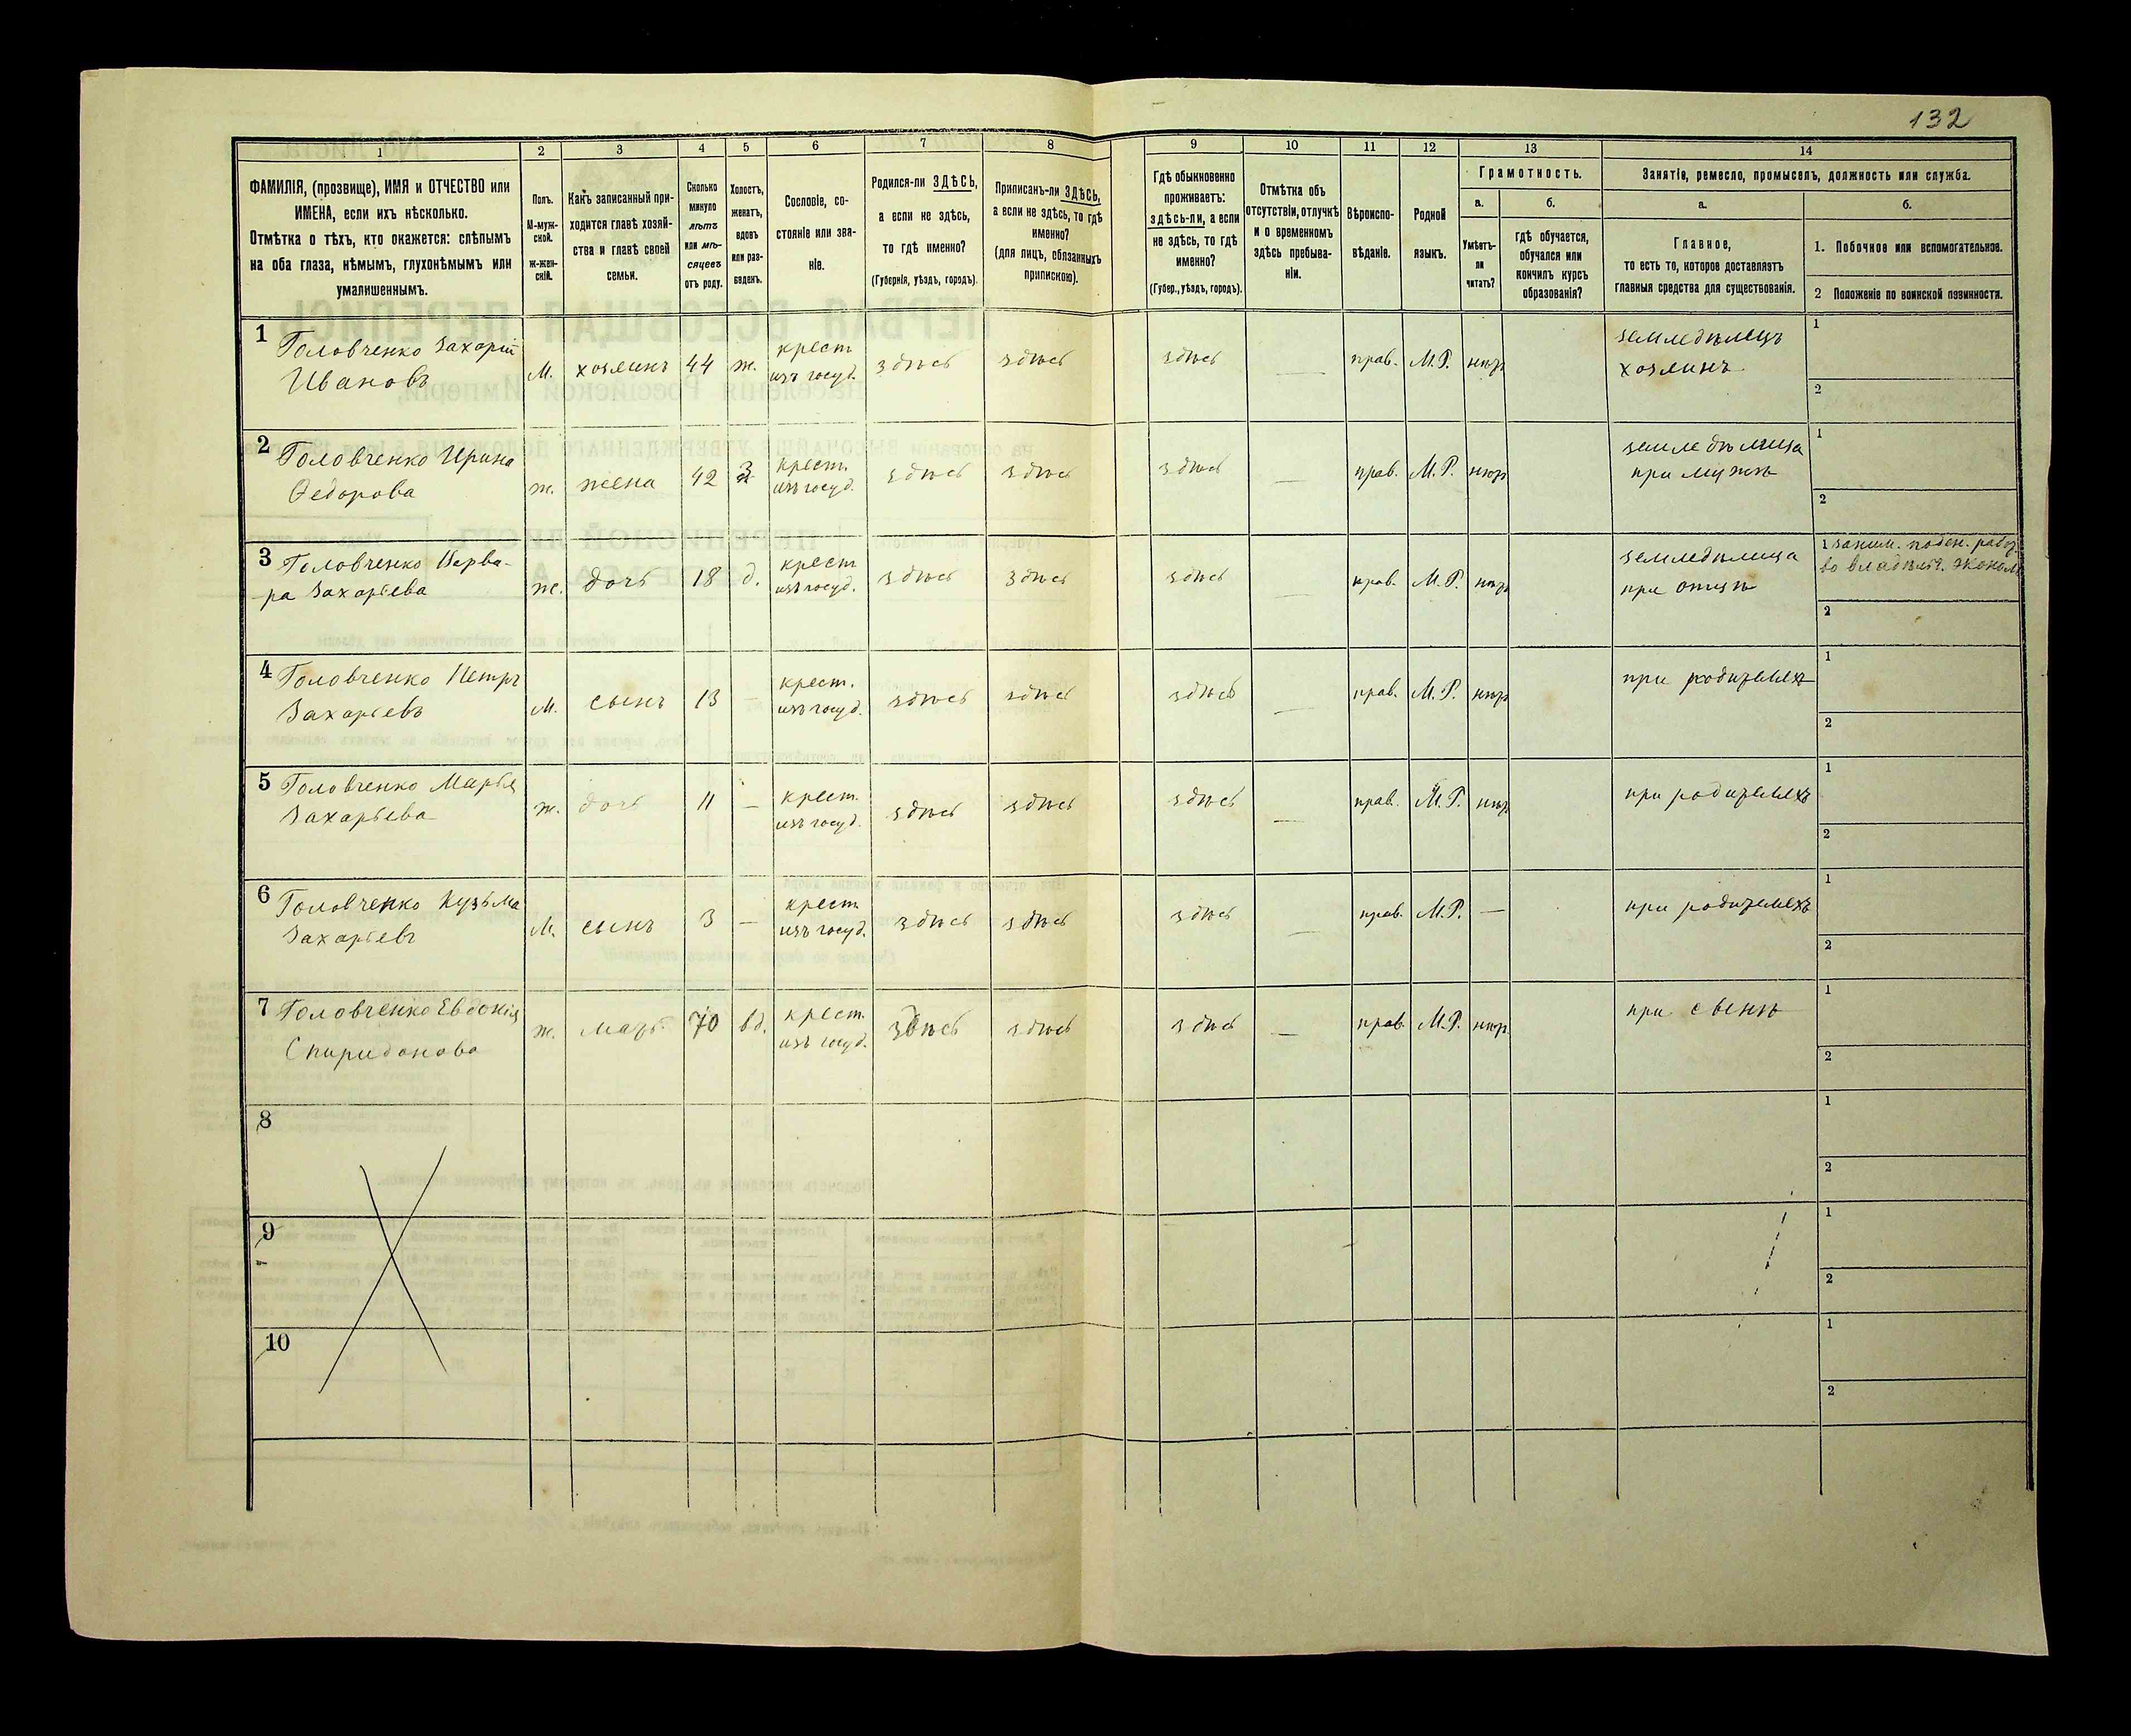 132
1
2
3
4
5
6
7
8
9
10
11
12
13
14
ФАМИЛІЯ, (прозвище), ИМЯ и ОТЧЕСТВО или
ИМЕНА, если ихъ нѣсколько.
Отмѣтка о тѣхъ, кто окажется: слѣпымъ
на оба глаза, нѣмымъ, глухонѣмымъ или
умалишеннымъ.
Полъ.
М-муж-
ской.
Ж-жен-
скій.
Какъ записанный при-
ходится главѣ хозяй-
ства и главѣ своей
семьи.
Сколько
минуло
лѣтъ
или мѣ-
сяцевъ
отъ роду.
Холостъ,
женатъ,
вдовъ
или раз-
веденъ.
Сословіе, со-
стояніе или зва-
ніе.
Родился-ли ЗДѢСЬ,
а если не здѣсь,
то гдѣ именно?
(Губернія, уѣздъ, городъ).
Приписанъ-ли ЗДѢСЬ,
а если не здѣсь, то гдѣ
именно?
(для лицъ, обязанныхъ
припискою).
Гдѣ обыкновенно
проживаетъ:
здѣсь-ли, а если
не здѣсь, то гдѣ
именно?
(Губер., уѣздъ, городъ).
Отмѣтка объ
отсутствіи, отлучкѣ
и о временномъ
здѣсь пребыва-
ніи.
Вѣроиспо-
вѣданіе.
Родной
языкъ.
Грамотность.
а.
Умѣетъ-
ли
читать?
б.
гдѣ обучается,
обучался или
кончилъ курсъ
образованія?
Занятіе, ремесло, промыселъ, должность или служба.
а.
Главное,
то есть то, которое доставляетъ
главныя средства для существованія.
б.
1. Побочное или вспомогательное.
2 Положеніе по воинской повинности.
1 Головченко Захарій
Ивановъ
М. хозяинъ 44 ж. крест
изъ госуд. здѣсь здѣсь здѣсь — прав. М.Р. нѣтъ
земледѣлецъ
хозяинъ
1
2
2 Головченко Ирина
Федорова
ж. жена 42 З крест.
изъ госуд. здѣсь здѣсь здѣсь — прав. М.Р. нѣтъ
земледѣлица
при мужѣ
1
2
3 Головченко Варва-
ра Захарьева
ж. дочь 18 д. крест
изъ госуд. здѣсь здѣсь здѣсь — прав. М.Р. нѣтъ
земледѣлица
при отцѣ
1 заним. поден. работ.
во владѣльч. эконом
2
4 Головченко Петръ
Захарьевъ
М. сынъ 13 — крест.
изъ госуд. здѣсь здѣсь здѣсь — прав. М.Р. нѣтъ
при родителяхъ
1
2
5 Головченко Марья
Захарьева
ж. дочь 11 — крест.
изъ госуд. здѣсь здѣсь здѣсь — прав. М.Р. нѣтъ
при родителяхъ
1
2
6 Головченко Кузьма
Захарьевъ
М. сынъ 3 — крест
изъ госуд. здѣсь здѣсь здѣсь — прав. М.Р. —
при родителяхъ
1
2
7 Головченко Евдокія
Спиридонова
ж. мать 70 вд. крест.
изъ госуд. здѣсь здѣсь здѣсь — прав. М.Р. нѣтъ
при сынѣ
1
2
8
1
2
9
1
2
10
1
2